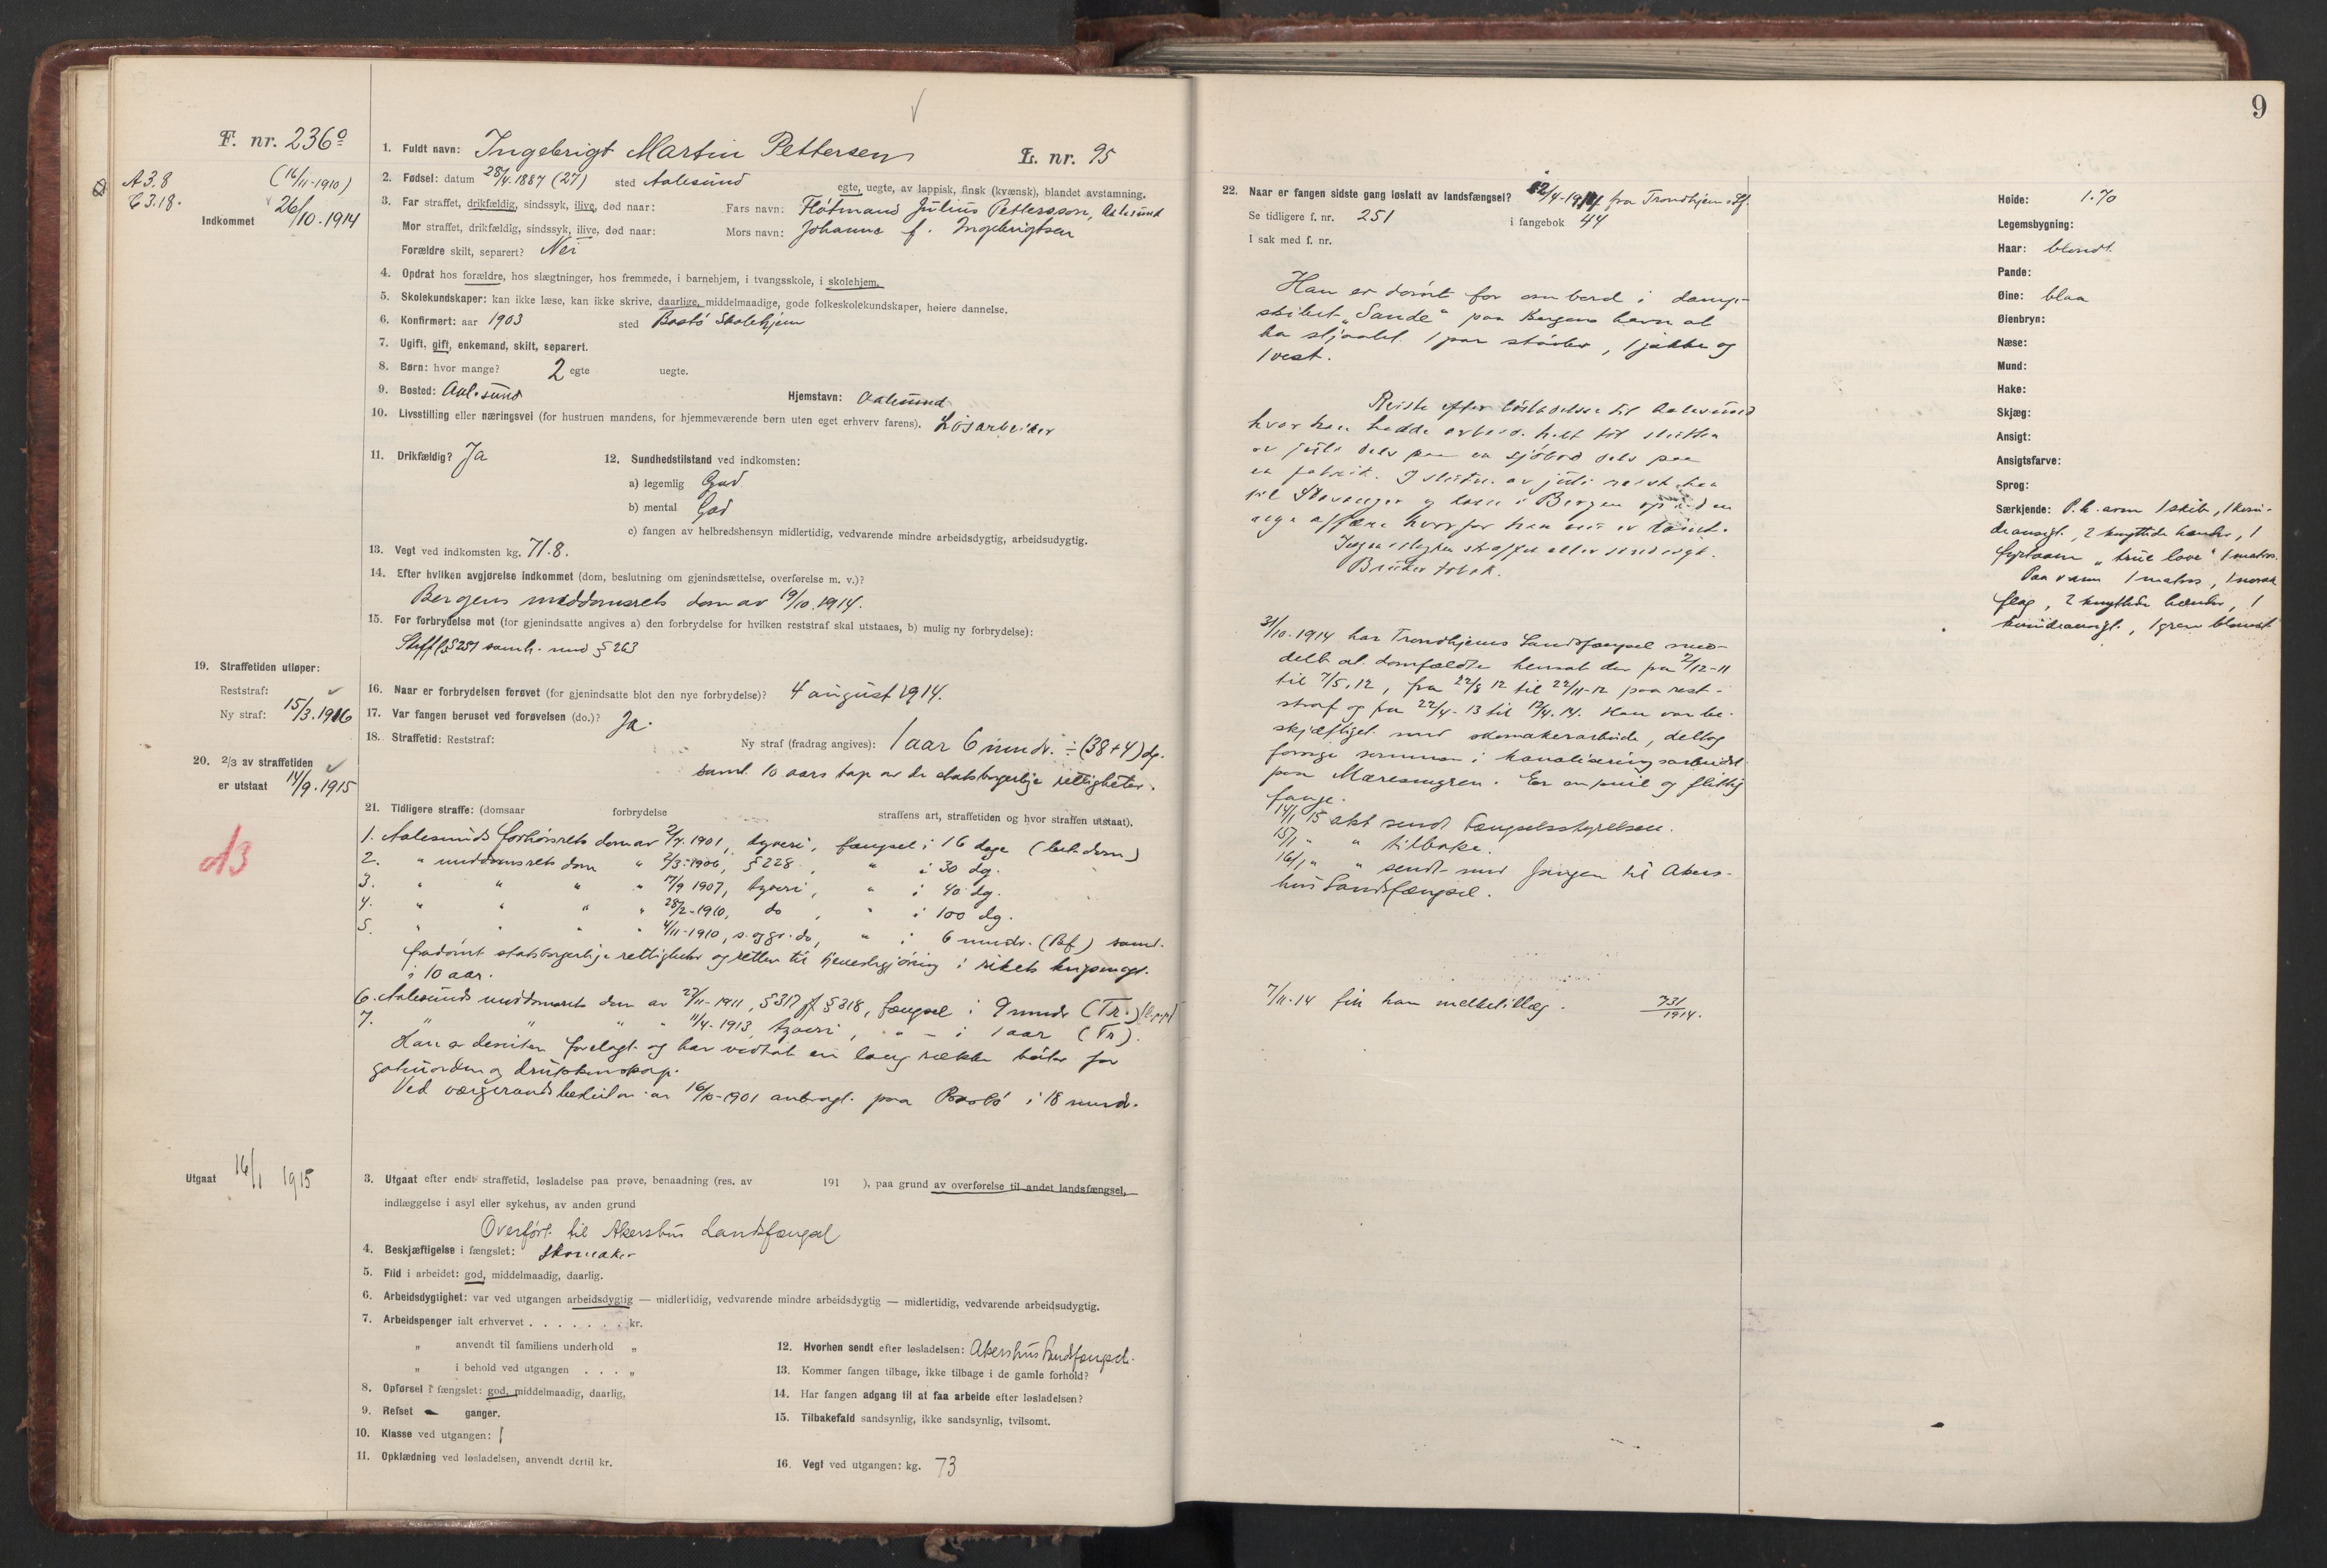 9
F. nr. 236
A 3.8
C 3.18.
(16/11-1910)
Indkommet 26/10.1914
1. Fuldt navn: Ingebrigt Martin Pettersen
L. nr. 95
2. Fødsel: datum 28/4.1887 (27) sted Aalesund
egte, uegte, av lappisk, finsk (kvænsk), blandet avstamning.
3. Far straffet, drikfældig, sindssyk, ilive, død naar: Fars navn: Fløtmand Julius Pettersson, Aalesund
Mor straffet, drikfældig, sindssyk, ilive, død naar: Mors navn: Johanne f. Ingebrigtsen
Forældre skilt, separert? Nei
4. Opdrat hos forældre, hos slægtninger, hos fremmede, i barnehjem, i tvangsskole, i skolehjem.
5. Skolekundskaper: kan ikke læse, kan ikke skrive, daarlige, middelmaadige, gode folkeskolekundskaper, høiere dannelse.
6. Konfirmert: aar 1903 sted Bastø Skolehjem
7. Ugift, gift, enkemand, skilt, separert.
8. Børn: hvor mange? 2 egte uegte.
9. Bosted: Aalesund Hjemstavn: Aalesund
10. Livsstilling eller næringsvei (for hustruen mandens, for hjemmeværende børn uten eget erhverv farens). Løsarbeider
11. Drikfældig? Ja
12. Sundhedstilstand ved indkomsten:
a) legemlig God
b) mental God
c) fangen av helbredshensyn midlertidig, vedvarende mindre arbeidsdygtig, arbeidsudygtig.
13. Vegt ved indkomsten kg. 71.8.
14. Efter hvilken avgjørelse indkommet (dom, beslutning om gjenindsættelse, overførelse m. v.)?
Bergens meddomsrets dom av 19/10.1914.
15. For forbrydelse mot (for gjenindsatte angives a) den forbrydelse for hvilken reststraf skal utstaaes, b) mulig ny forbrydelse):
Strffl. § 257 samh. med § 263
19. Straffetiden utløper:
Reststraf:
Ny straf: 15/3.1916
16. Naar er forbrydelsen forøvet (for gjenindsatte blot den nye forbrydelse)? 4 august 1914.
17. Var fangen beruset ved forøvelsen (do.)? Ja.
18. Straffetid: Reststraf: Ny straf (fradrag angives): 1 aar 6 mndr. ÷ (38+4) dg.
saml. 10 aars tap av de statsborgerlige rettigheter.
20. 2/3 av straffetiden
er utstaat 14/9.1915
A3
21. Tidligere straffe: (domsaar forbrydelse straffens art, straffetiden og hvor straffen utstaat).
1. Aalesunds forhørsrets dom av 2/4.1901, tyveri, fængsel i 16 dage (bet. dom)
2. " meddomsrets dom " 2/3-1906, § 228 " i 30 dg.
3. " " " " 17/9 1907, tyveri, " i 40 dg.
4. " " " " 28/2-1910, do , " i 100 dg.
5. " " " " 4/11-1910, s. og gr. do, " i 6 mndr. (Bf) saml.
fradømt statsborgerlige rettigheter og retten til tjenestegjøring i rikets krigsmagt
i 10 aar.
6. Aalesunds meddomsrets dom av 27/11-1911, § 317 jf § 318, fængsel i 9 mndr (Tr.)
7. " " " " 11/4-1913 tyveri, " - i 1 aar (Tr).
Han er desuten forelagt og har vedtat en lang række bøter for
gatuorden og drukkenskap.
Ved vergeraadsbeslutn. av 16/10-1901 anbragt paa Bastø i 18 mnd.
Utgaat 16/1 1915
3. Utgaat efter endt straffetid, løsladelse paa prøve, benaadning (res. av 191 ), paa grund av overførelse til andet landsfængsel,
indlæggelse i asyl eller sykehus, av anden grund
Overført til Akershus Landsfængsel
4. Beskjæftigelse i fængslet: skomaker
5. Flid i arbeidet: god, middelmaadig, daarlig.
6. Arbeidsdygtighet: var ved utgangen arbeidsdygtig — midlertidig, vedvarende mindre arbeidsdygtig — midlertidig, vedvarende arbeidsudygtig.
7. Arbeidspenger ialt erhvervet . . . . . . . kr.
" anvendt til familiens underhold "
" i behold ved utgangen . . . "
8. Opførsel i fængslet: god, middelmaadig, daarlig.
9. Refset - ganger.
10. Klasse ved utgangen: I
11. Opklædning ved løsladelsen, anvendt dertil kr.
12. Hvorhen sendt efter løsladelsen: Akershus Landsfængsel.
13. Kommer fangen tilbage, ikke tilbage i de gamle forhold?
14. Har fangen adgang til at faa arbeide efter løsladelsen?
15. Tilbakefald sandsynlig, ikke sandsynlig, tvilsomt.
16. Vegt ved utgangen: kg. 73
22. Naar er fangen sidste gang løslatt av landsfængsel? 12/4-1914 fra Trondhjems Lf.
Se tidligere f. nr. 251 i fangebok 44
I sak med f. nr.
Han er dømt for ombord i damp-
skibet "Sande" paa Bergens havn at
ha stjaalet 1 par støvler, 1 jakke og
1 vest.
Reiste efter løsladelsen til Aalesund
hvor han hadde arbeid helt til slutten
av juli dels paa en sjøbod dels paa
en fabrik. I slutn. av juli reiste han
til Stavanger og kom i Bergen op i den
affære hvorfor han nu er dømt.
Ingen slegtn straffet eller sindssygt.
Bruker tobak.
31/10.1914 har Trondhjems Landsfængsel med-
delt at domfældte hensat der fra 2/12-11
til 7/5.12, fra 22/8 12 til 22/11-12 paa rest-
straf og fra 22/4-13 til 12/4.14. Han var be-
skjæftiget med skomakerarbeide, deltog
forrige sommer i kanaliseringsarbeidet
paa Mæresmyren. Er en snil og flittig
fange.
14/1 15 akt sendt Fængselsstyrelsen.
15/1 " " tilbake.
16/1 " " sendt med fangen til Akers-
hus Landsfængsel.
7/11-14 fik han melketillæg. 731/1914.
Høide: 1.70
Legemsbygning:
Haar: blondt
Pande:
Øine: blaa
Øienbryn:
Næse:
Mund:
Hake:
Skjæg:
Ansigt:
Ansigtsfarve:
Sprog:
Særkjende: P. h. arm 1 skib, 1 kvin-
deansigt, 2 knyttede hænder, 1
"true love" 1 matros.
Paa v. arm 1 matros, 1 norsk
flag, 2 knyttede hænder, 1
kvindeansigt, 1 gren blomst